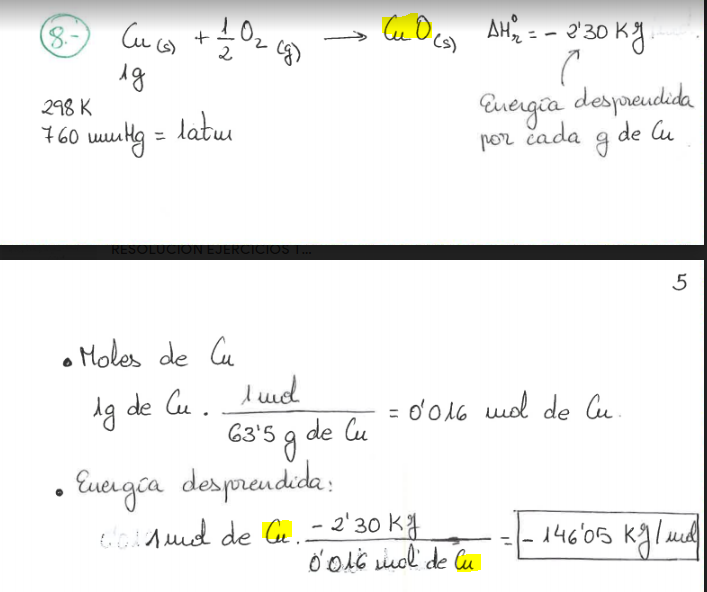 8.- Cu (s) + 1/2 O2 (g) → CuO(s) ΔHºr = - 2'30 KJ
1g
298 K
760 mmHg = 1atm
Energía desprendida
por cada g de Cu
RESOLUCIÓN EJERCICIOS T...
5
• Moles de Cu
1g de Cu . 1 mol / 63'5 g de Cu = 0'016 mol de Cu.
• Energía desprendida:
1 mol de Cu . - 2'30 KJ / 0'016 mol de Cu = - 146'05 KJ/mol